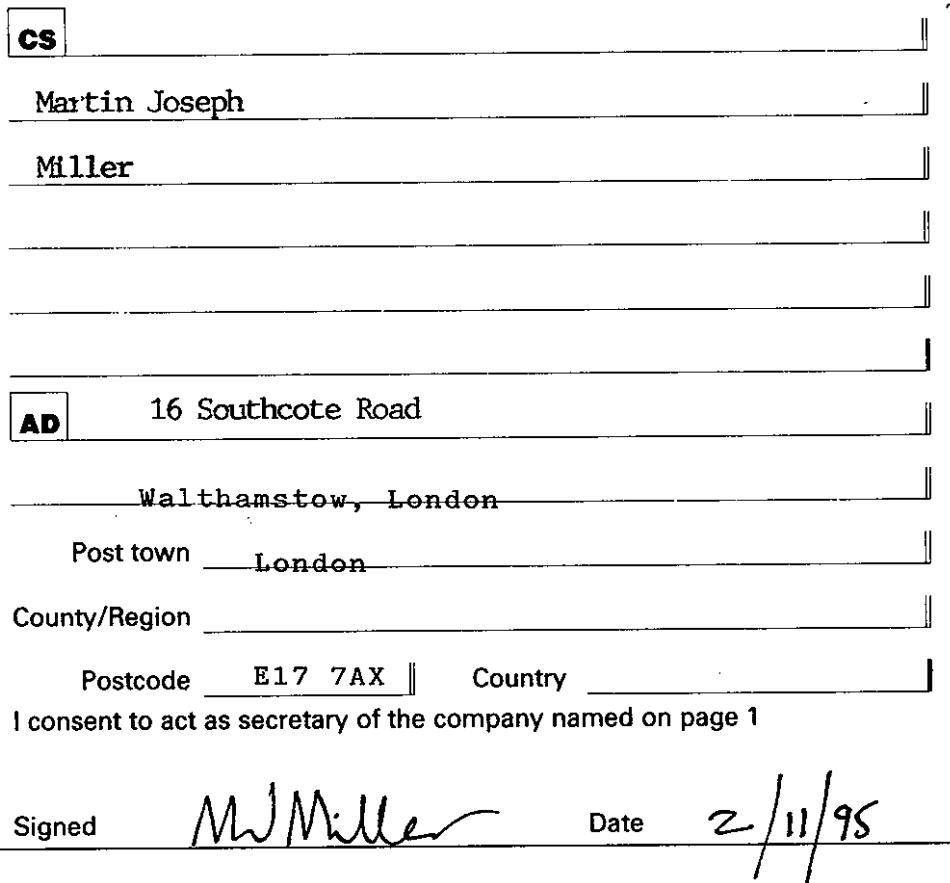 CS
Martin Joseph
Miller
AD 16 Southcote Road
Walthamstow, London
Post town London
County/Region
Postcode E17 7AX Country
I consent to act as secretary of the company named on page 1
Signed MJ Miller Date 2/11/95